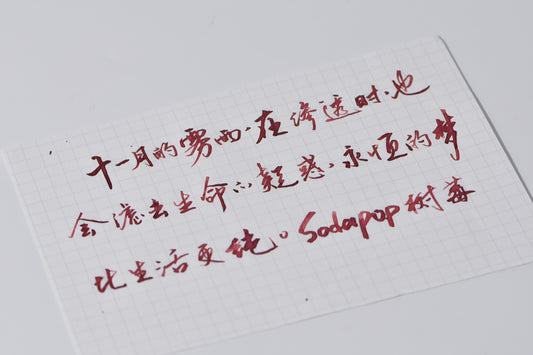 十一月的雾雨，在渗透时，也
会滤去生命心疑惑，永恒的梦
比生活更纯。Sodapop树莓